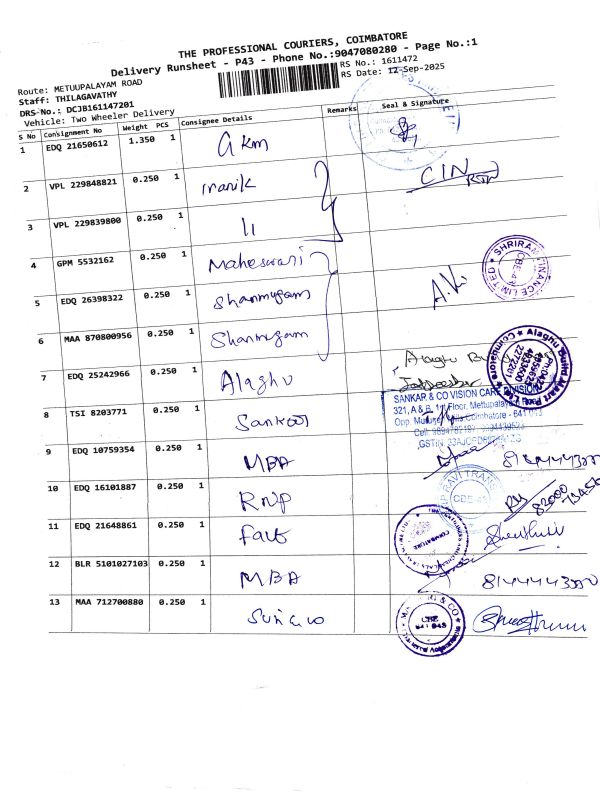 THE PROFESSIONAL COURIERS, COIMBATORE
Delivery Runsheet - P43 - Phone No.:9047080280 - Page No.:1
Route: METUUPALAYAM ROAD
RS No.: 1611472
Staff: THILAGAVATHY
RS Date: 12-Sep-2025
DRS-No.: DCJB161147201
Vehicle: Two Wheeler Delivery
S No Consignment No Weight PCS Consignee Details Remarks Seal & Signature
1 EDQ 21650612 1.350 1 akm
2 VPL 229848821 0.250 1 manik CIN
3 VPL 229839800 0.250 1 11
4 GPM 5532162 0.250 1 Maheswari
SHRIRAM FINANCE LIMITED
5 EDQ 26398322 0.250 1 Shanmugam
6 MAA 870800956 0.250 1 Shanmugam
7 EDQ 25242966 0.250 1 Alaghu Alaghu
SANKAR & CO VISION CARE DIVISION
321, A & B, 1st Floor, Mettupalayam
8 TSI 8203771 0.250 1 Sankar
9 EDQ 10759354 0.250 1 MBA
10 EDQ 16101887 0.250 1 RNP
RAVI TRANS
11 EDQ 21648861 0.250 1
COIMBATORE
12 BLR 5101027103 0.250 1 MBA
13 MAA 712700880 0.250 1
& CO
CBE
641 043